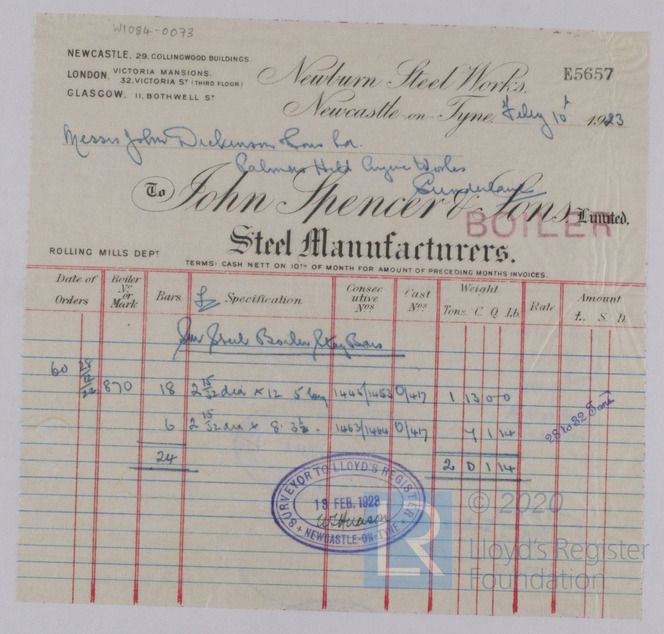 W1084-0073
NEWCASTLE, 29. COLLINGWOOD BUILDINGS.
LONDON, VICTORIA MANSIONS,
32, VICTORIA ST (THIRD FLOOR)
GLASGOW, 11, BOTHWELL ST
Newburn Steel Works,
E5657
Newcastle-on-Tyne, Feby 10th 1923
Messrs John Dickinson & Sons Ld.
Palmers Hill Engine Works
Sunderland
To John Spencer & Sons, Limited.
BOILER
Steel Manufacturers.
ROLLING MILLS DEPT
TERMS: CASH NETT ON 10TH OF MONTH FOR AMOUNT OF PRECEDING MONTHS INVOICES.
Date of Orders Boiler No or Mark Bars Specification Consecutive Nos Cast Nos Weight Tons. C. Q. Lb. Rate Amount £. S D.
Steel Boiler Stay Bars
60 28/12/22 870 18 2 15/32 dia × 12 5 long 1445/1453 O/417 1 13 0 0
6 2 15/32 dia × 8. 3½ . 1463/1464 O/417 7 1 14
28 to 32 Tons
24 2 0 1 14
SURVEYOR TO LLOYD'S REGISTER
13 FEB. 1923
NEWCASTLE-ON-TYNE
LR
© 2020
Lloyd's Register
Foundation